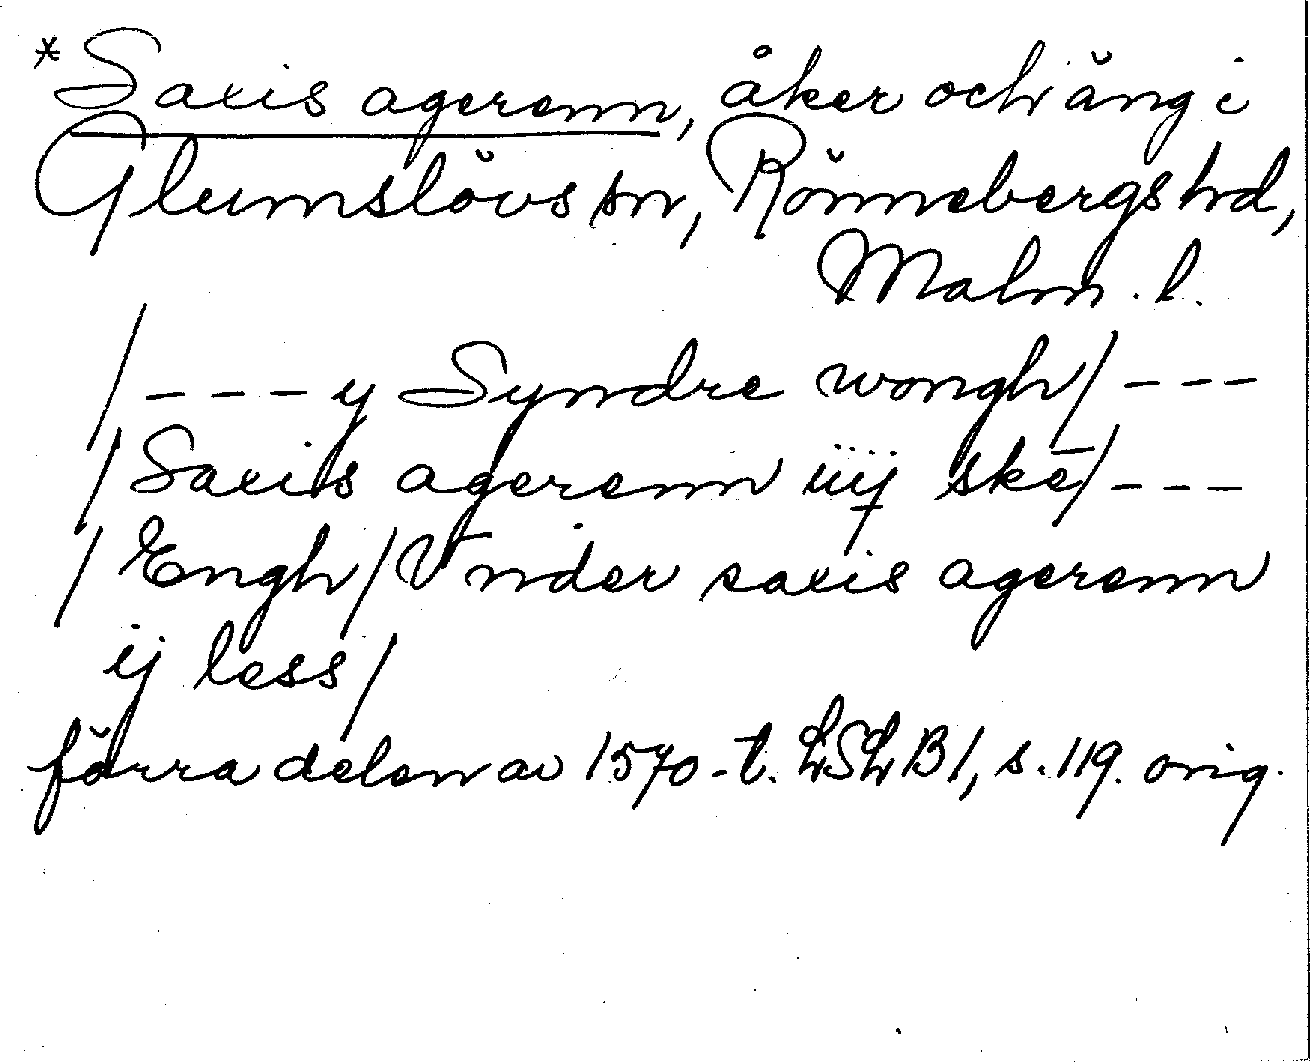 *Saxis agerenn, åker och äng i
Glumslövs sn, Rönnebergs hd,
Malm. l.
/ - - - y Syndre wongh/ - - -
/ Saxis agerenn iiij skē/ - - -
/ Engh/ Vnder saxis agerenn
ij less/
förra delen av 1570-t. LSLB1, s. 119. orig.